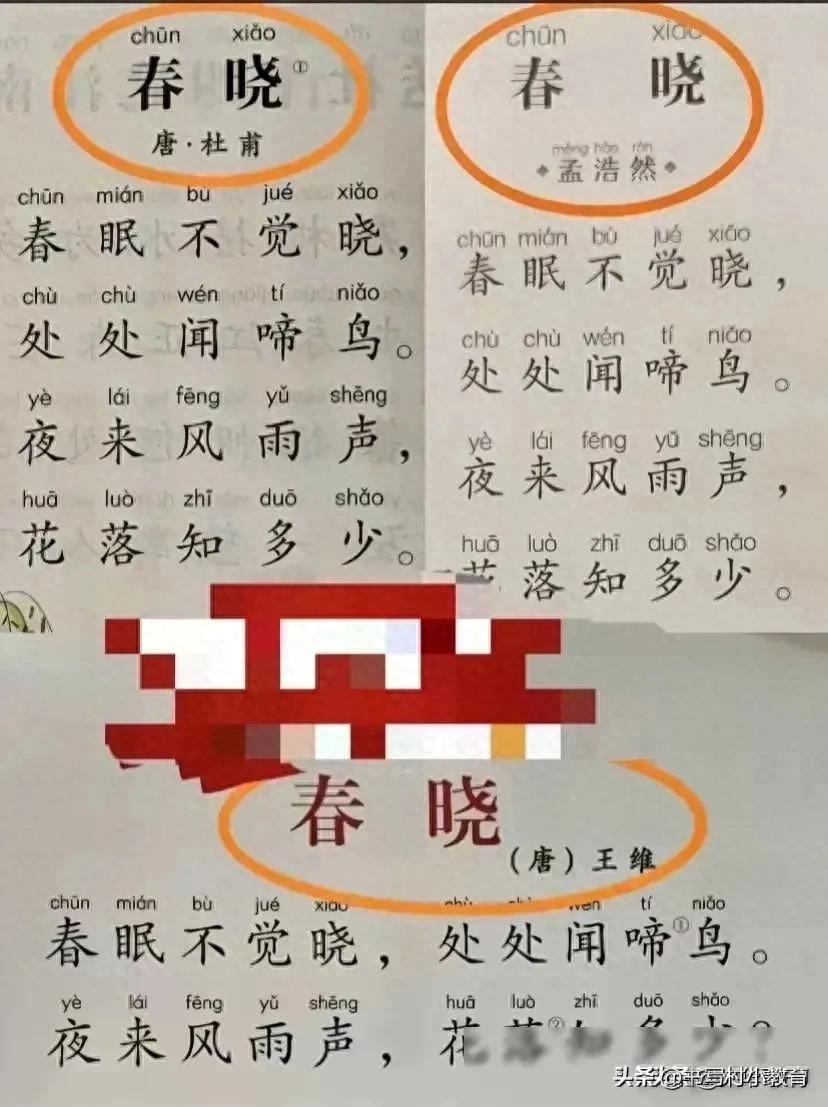 chūn xiǎo
春 晓①
唐·杜甫
chūn mián bu jué xiǎo
春眠不觉晓，
chù chù wén tí niǎo
处处闻啼鸟。
yè lái fēng yǔ shēng
夜来风雨声，
huā luò zhī duō shǎo
花落知多少。
chūn xiǎo
春 晓
mèng hào rán
孟浩然
chūn mián bù jué xiǎo
春眠不觉晓，
chù chù wén tí niǎo
处处闻啼鸟。
yè lái fēng yǔ shēng
夜来风雨声，
huā luò zhī duō shǎo
花落知多少。
春 晓
（唐）王维
chūn mián bù jué xiǎo tí niǎo
春眠不觉晓，处处闻啼①鸟。
yè lái fēng yǔ shēng huā luò zhī duō shǎo
夜来风雨声，花落②知多少？
头条 村小教育